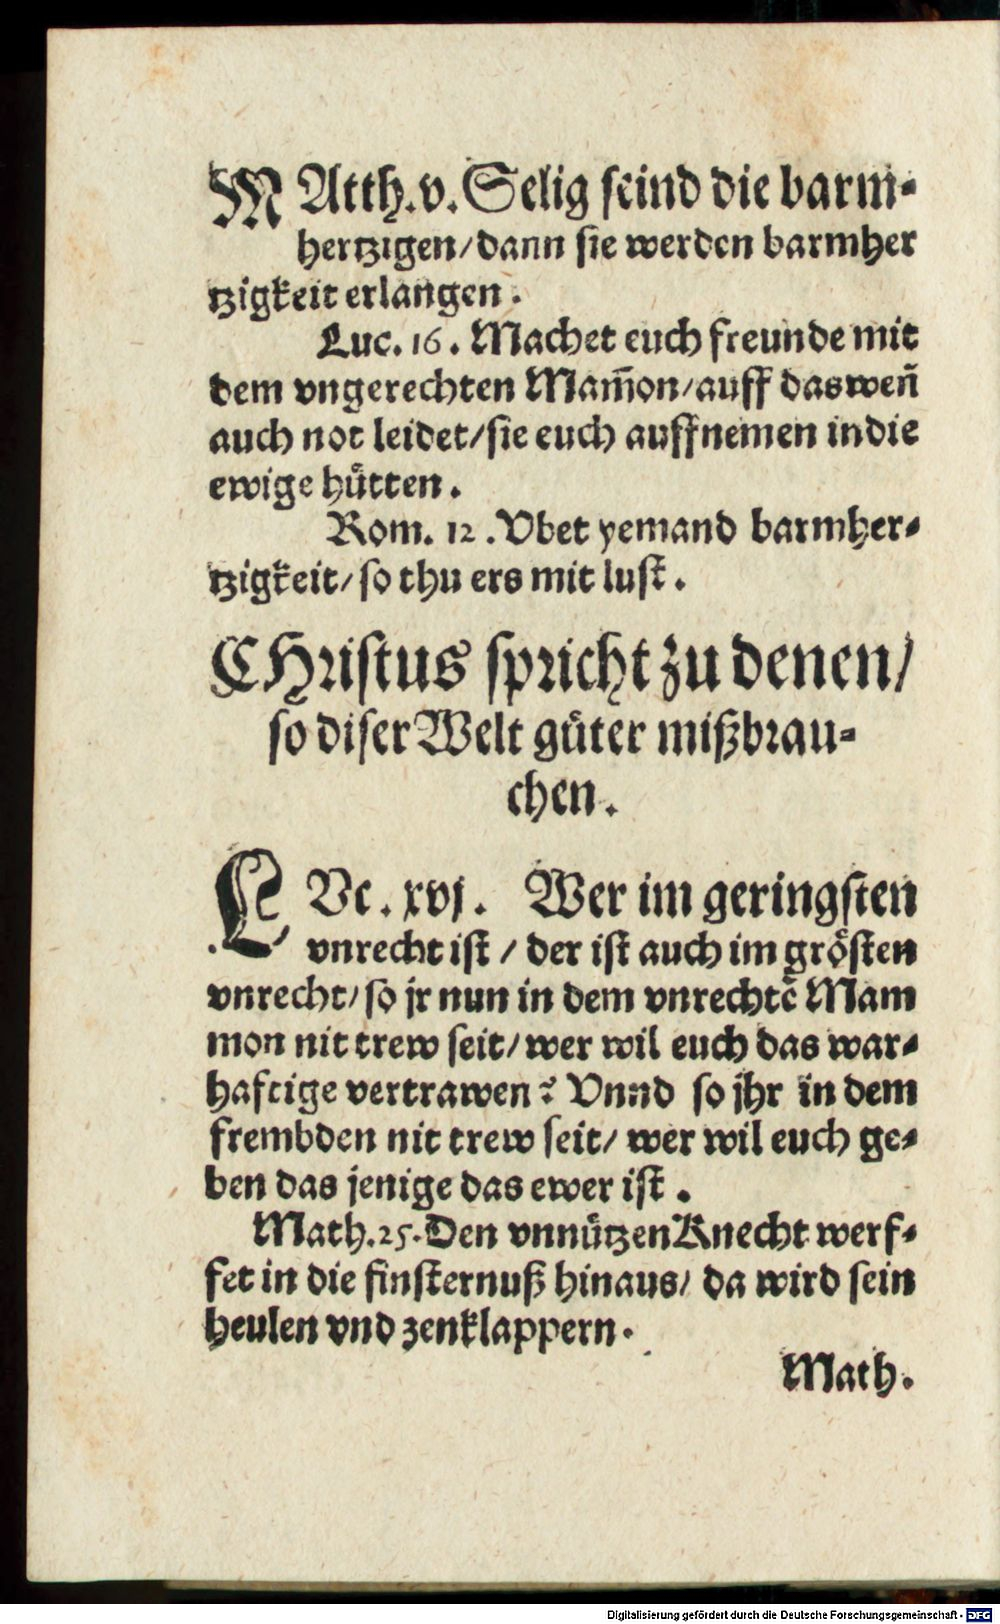 MAtth.v. Selig seind die barm-
hertzigen/ dann sie werden barmher
tzigkeit erlangen.
Luc. 16. Machet euch freunde mit
dem vngerechten Mam̃on/ auff das weñ
auch not leidet/ sie euch auffnemen in die
ewige huͤtten.
Rom. 12. Vbet yemand barmher-
tzigkeit/ so thu ers mit lust.
CHristus spricht zu denen/
so diser Welt guͤter mißbrau-
chen.
LVc. xvj. Wer im geringsten
vnrecht ist/ der ist auch im groͤsten
vnrecht/ so jr nun in dem vnrechtẽ Mam
mon nit trew seit/ wer wil euch das war-
haftige vertrawen? Vnnd so jhr in dem
frembden nit trew seit/ wer wil euch ge-
ben das jenige das ewer ist.
Math.25. Den vnnuͤtzen Knecht werf-
fet in die finsternuß hinaus/ da wird sein
heulen vnd zenklappern.
Math.
Digitalisierung gefördert durch die Deutsche Forschungsgemeinschaft - DFG